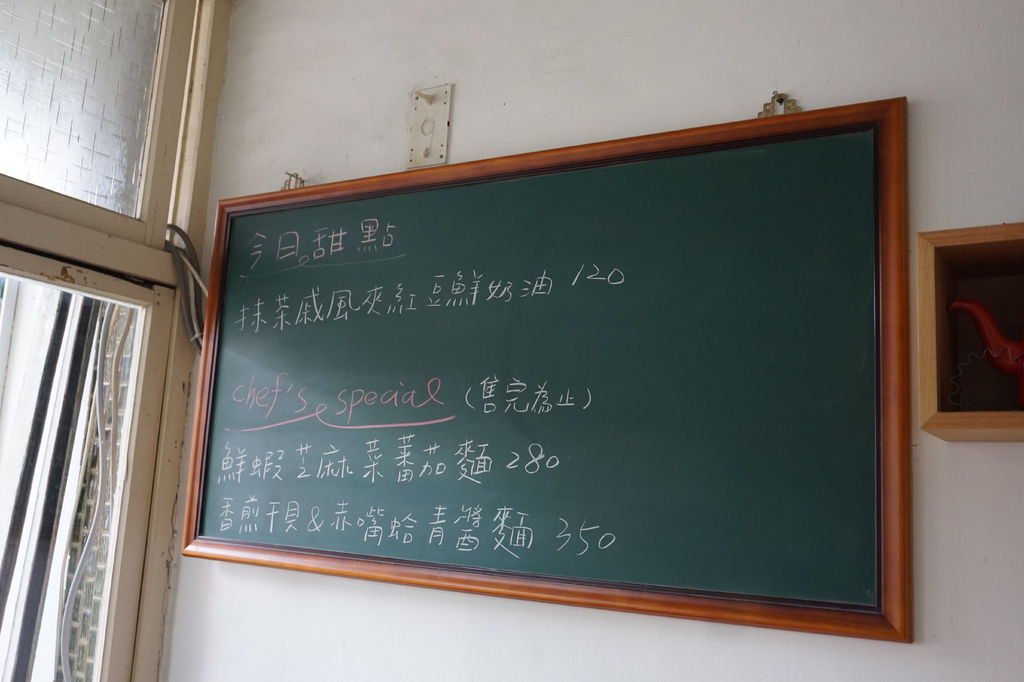 今日甜點
抹茶戚風夾紅豆鮮奶油 120
chef's special (售完為止)
鮮蝦芝麻菜蕃茄麵 280
香煎干貝&赤嘴蛤青醬麵 350